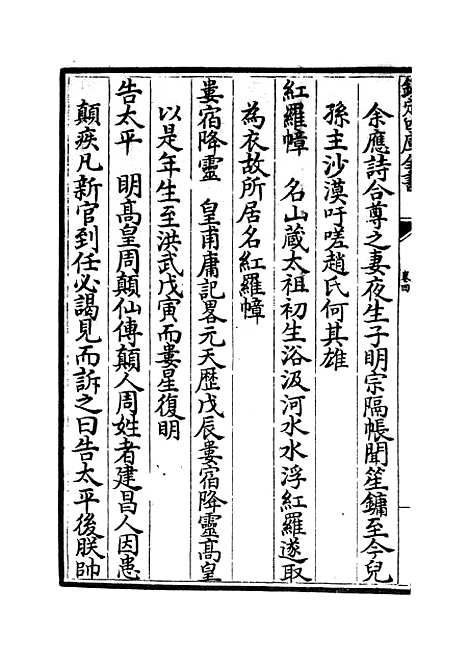 欽定四庫全書
卷四
余應詩合尊之妻夜生子明宗隔帳聞笙鏞至今兒
孫主沙漠吁嗟趙氏何其雄
紅羅幛　名山蔵太祖初生浴汲河水水浮紅羅遂取
為衣故所居名紅羅幛
婁宿降靈　皇甫庸記畧元天歴戊辰婁宿降靈髙皇
以是年生至洪武戊寅而婁星復明
告太平　明髙皇周顛仙傳顛人周姓者建昌人因患
顛疾凡新官到任必謁見而訴之曰告太平後朕帥